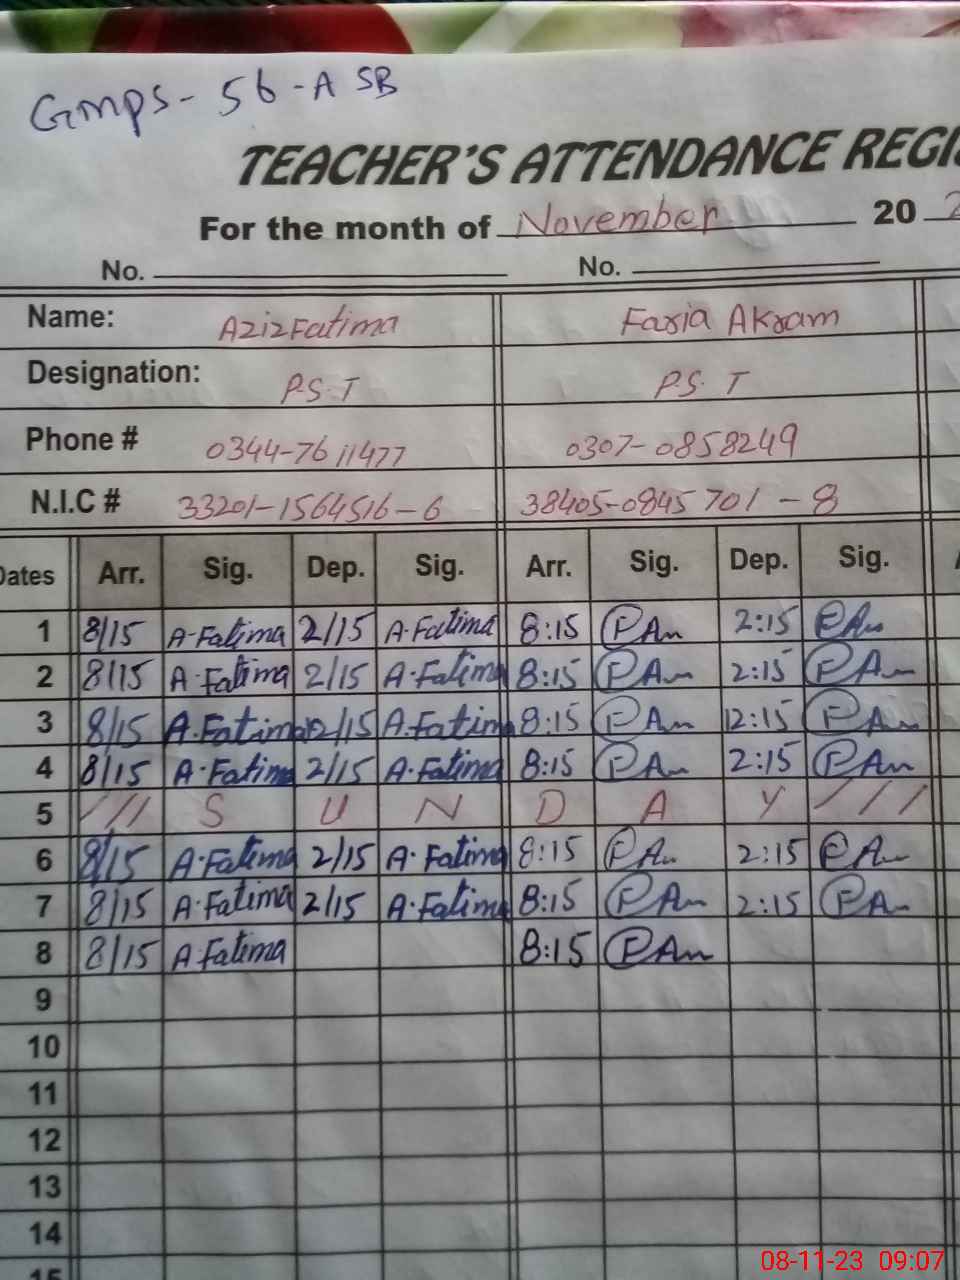 Gmps - 56 - A SB
TEACHER'S ATTENDANCE REGI
For the month of November 20 2
No. No.
Name: Aziz Fatima Faria Akram
Designation: P.S.T P.S.T
Phone # 0344-7611477 0307-0858249
N.I.C # 33201-1564516-6 38405-0845701-8
Dates Arr. Sig. Dep. Sig. Arr. Sig. Dep. Sig.
1 8/15 A-Fatima 2/15 A.Fatima 8:15 2:15
2 8/15 A.Fatima 2/15 A.Fatima 8:15 2:15
3 8/15 A.Fatima 2/15 A.Fatima 8:15 12:15
4 8/15 A.Fatima 2/15 A.Fatima 8:15 2:15
5 /// S U N D A Y ///
6 8/15 A.Fatima 2/15 A.Fatima 8:15 2:15
7 8/15 A.Fatima 2/15 A.Fatima 8:15 2:15
8 8/15 A.Fatima 8:15
9
10
11
12
13
14
15
08-11-23 09:07